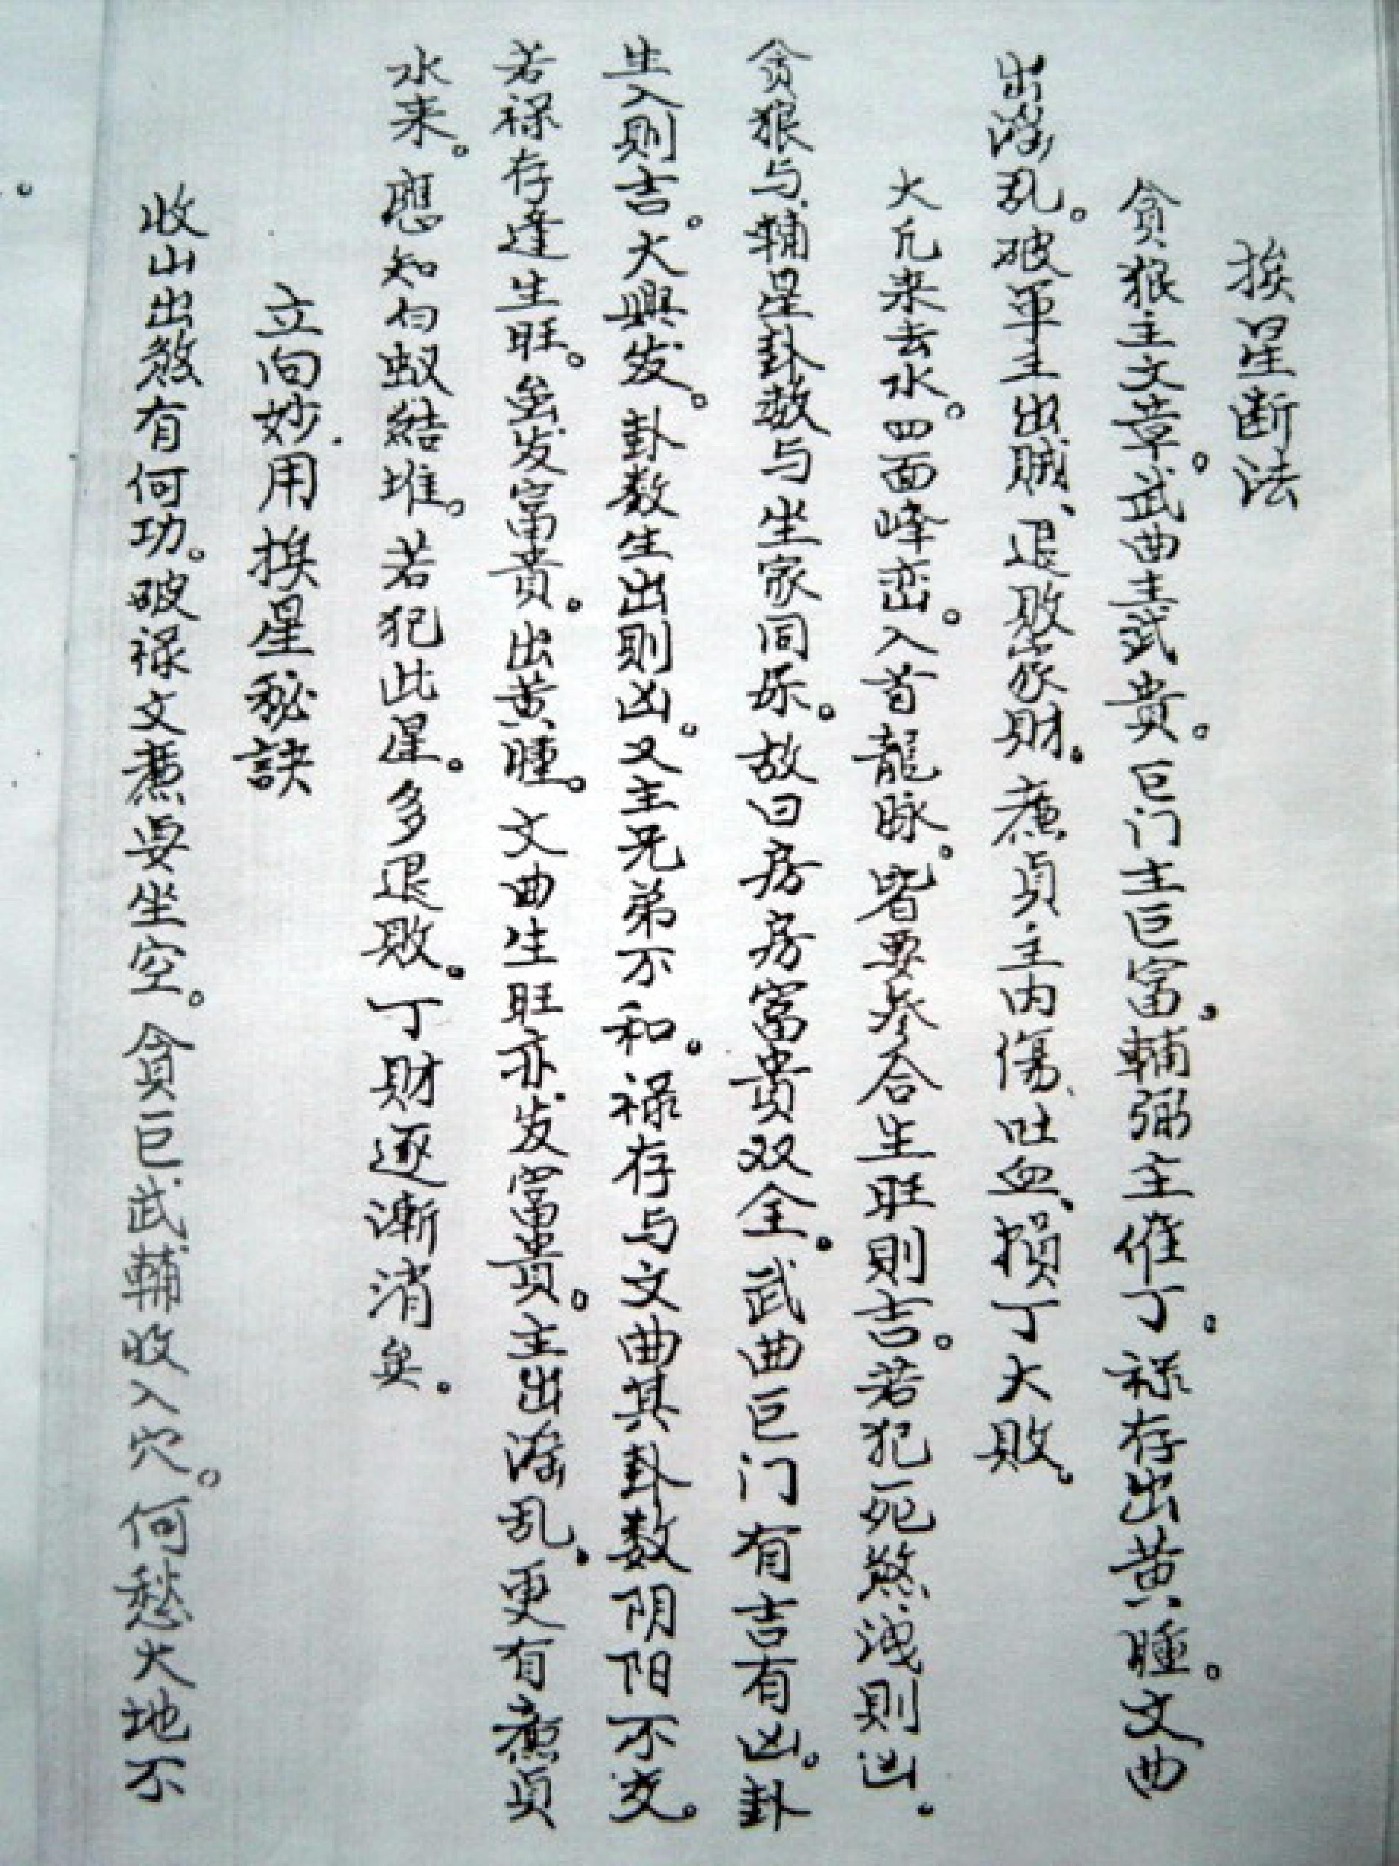 挨星断法
貪狼主文章。武曲主武貴。巨门主巨富。輔弼主催丁。禄存出黄腫。文曲
出滛乱。破軍主出賊、退败家财。亷貞主内傷、吐血、损丁大败。
大凢来去水。四面峰峦。入首龍脉。皆要参合生旺則吉。若犯死煞洩則凶。
貪狼与輔星卦数与坐家同乐。故曰房房富貴双全。武曲巨门有吉有凶。卦
生入則吉。大興发。卦数生出則凶。又主兄弟不和。禄存与文曲其卦数阴阳不交。
若禄存逢生旺。虽发富貴。出黄腫。文曲生旺亦发富貴。主出滛乱。更有亷貞
水来。應知白蚁結堆。若犯此星。多退败。丁财逐漸消矣。
立向妙用挨星秘訣
收山出煞有何功。破禄文亷要坐空。貪巨武輔收入穴。何愁大地不